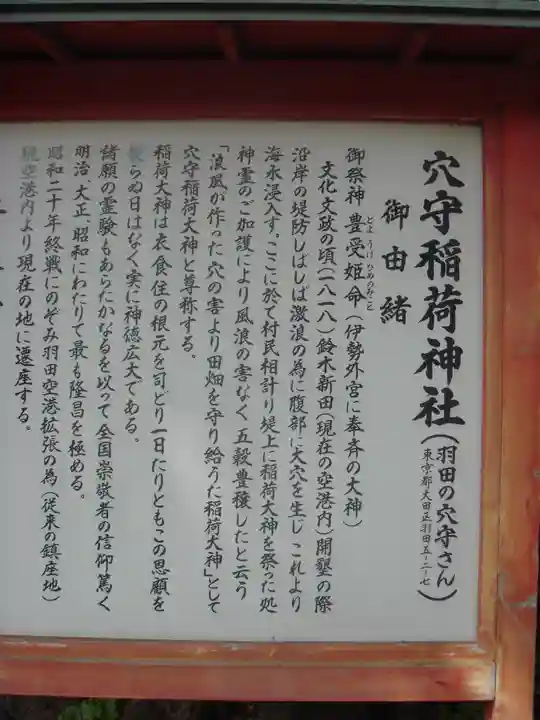 穴守稲荷神社(羽田の穴守さん)
東京都大田区羽田五-二-七
御由緒
御祭神 豊受姫命(伊勢外宮に奉斉の大神)
とようけひめのみこと
文化文政の頃(一八一八)鈴木新田(現在の空港内)開墾の際
沿岸の堤防しばしば激浪の為に腹部に大穴を生じ これより
海水浸入す。ここに於て村民相計り堤上に稲荷大神を祭った処
神霊のご加護により風浪の害なく 五穀豊穣したと云う
「浪風が作った穴の害より田畑を守り給うた稲荷大神」として
穴守稲荷大神と尊称する。
稲荷大神は衣食住の根元を司どり一日たりともこの恩顧を
らぬ日はなく実に神徳広大である。
諸願の霊験もあらたかなるを以って全国崇敬者の信仰篤く
明治、大正、昭和にわたりて最も隆昌を極める。
昭和二十年終戦にのぞみ羽田空港拡張の為(従来の鎮座地)
現空港内より現在の地に遷座する。